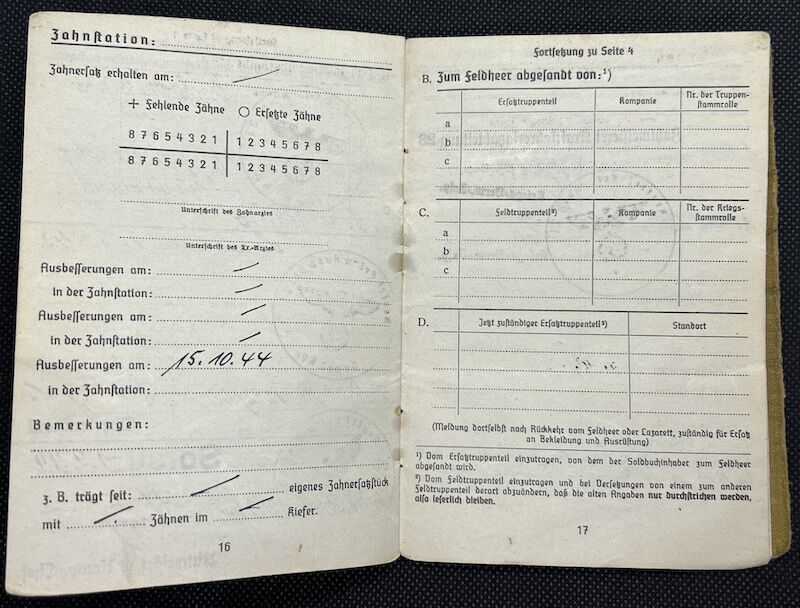 Zahnstation:
Zahnersatz erhalten am:
+ Fehlende Zähne O Ersetzte Zähne
8 7 6 5 4 3 2 1 1 2 3 4 5 6 7 8
8 7 6 5 4 3 2 1 1 2 3 4 5 6 7 8
Unterschrift des Zahnarztes
Unterschrift des Tr.-Arztes
Ausbesserungen am:
in der Zahnstation:
Ausbesserungen am:
in der Zahnstation:
Ausbesserungen am: 15.10.44
in der Zahnstation:
Bemerkungen:
z. B. trägt seit: eigenes Zahnersatzstück
mit Zähnen im Kiefer.
16
Fortsetzung zu Seite 4
B. Zum Feldheer abgesandt von:¹)
Ersatztruppenteil Kompanie Nr. der Truppen-
stammrolle
a
b
c
C. Feldtruppenteil²) Kompanie Nr. der Kriegs-
stammrolle
a
b
c
D. Jetzt zuständiger Ersatztruppenteil²) Standort
(Meldung dortselbst nach Rückkehr vom Feldheer oder Lazarett, zuständig für Ersatz
an Bekleidung und Ausrüstung)
¹) Vom Ersatztruppenteil einzutragen, von dem der Soldbuchinhaber zum Feldheer
abgesandt wird.
²) Vom Feldtruppenteil einzutragen und bei Versetzungen von einem zum anderen
Feldtruppenteil derart abzuändern, daß die alten Angaben nur durchstrichen werden,
also leserlich bleiben.
17